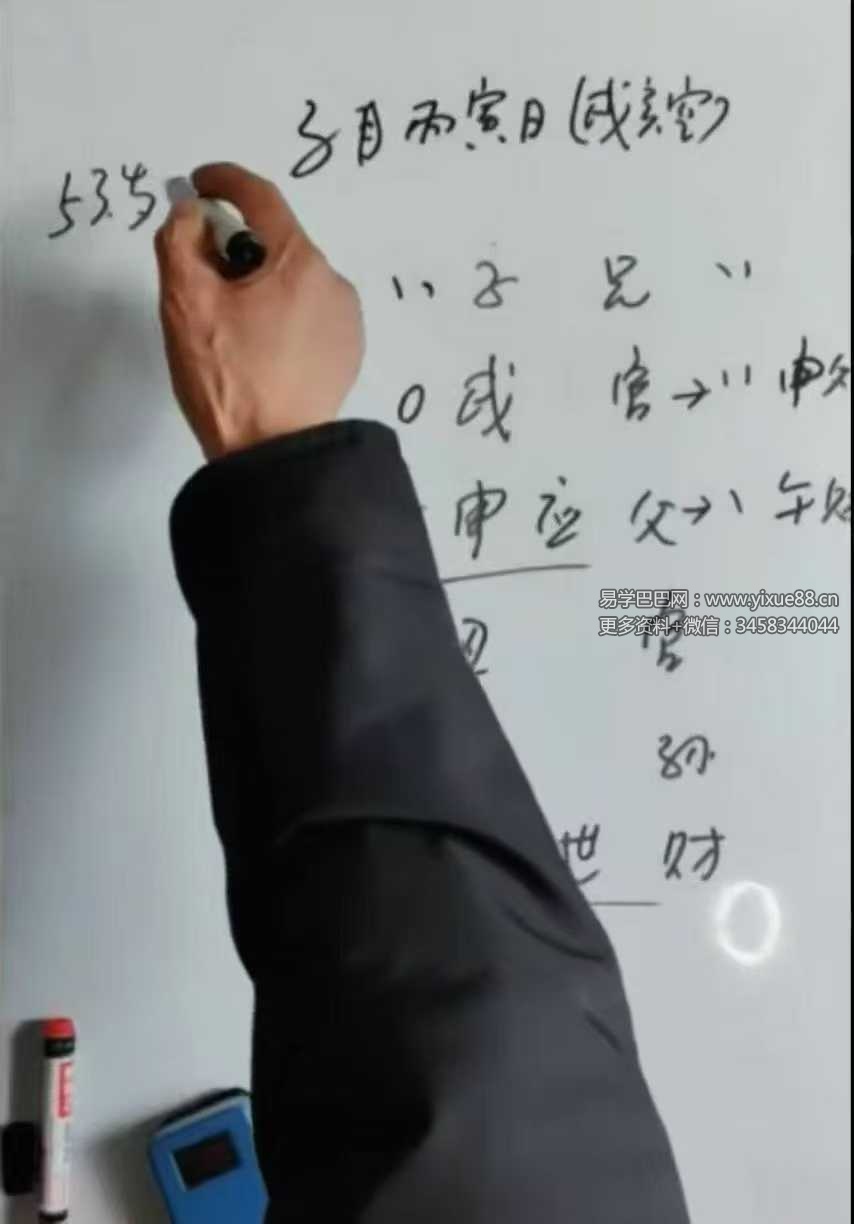 子月丙寅日(戌亥空)
53岁
〃 子 兄 〃
O 戌 官→〃 申父
申 应 父→、 午财
易学巴巴网:www.yixue88.cn
更多资料+微信:3458344044
丑 官
孙
世 财